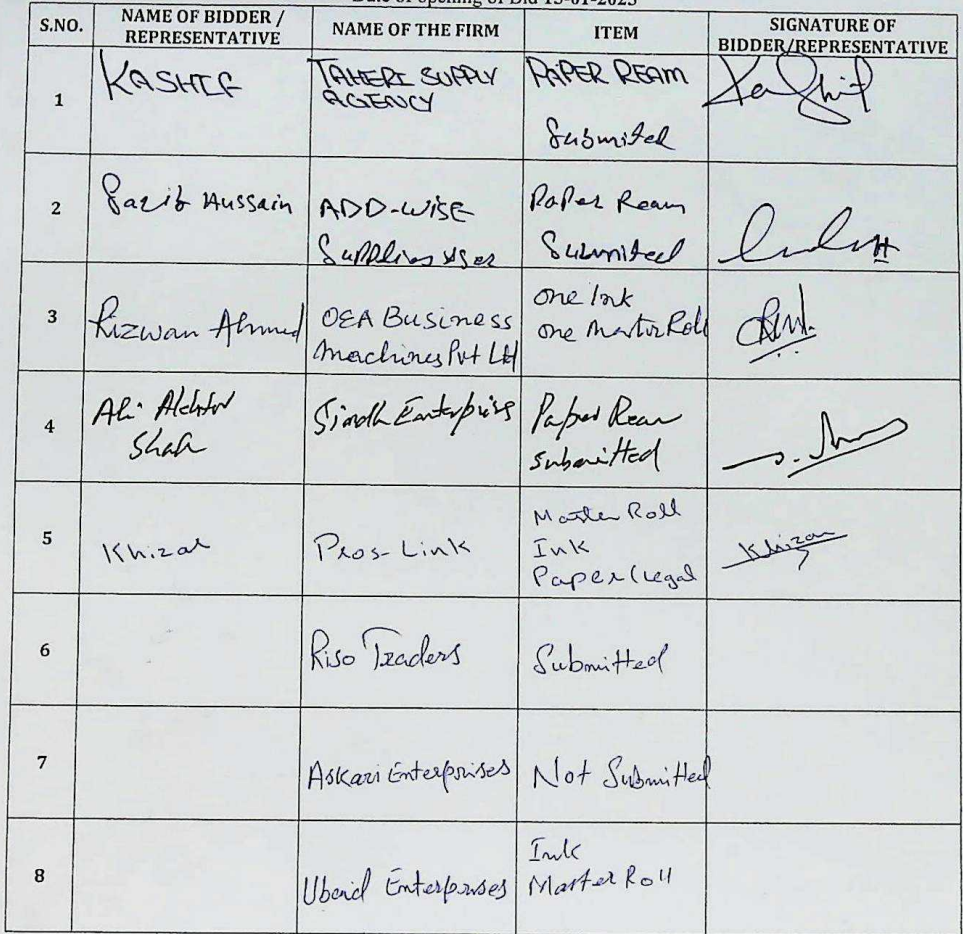 Date of opening of Bid 13-01-2023
S.NO. NAME OF BIDDER / REPRESENTATIVE NAME OF THE FIRM ITEM SIGNATURE OF BIDDER/REPRESENTATIVE
1 KASHIF TAHERI SUPPLY AGENCY PAPER REAM Submited Kashif
2 Hussain ADD-WISE Paper Ream Submited
3 Rizwan Ahmed OEA Business Machines Pvt Ltd one Ink one Master Roll
4 Ali Akhtar Shah Sindh Enterprise Paper Ream submitted
5 Khizar Pros-Link Master Roll Ink Paper (Legal Khizar
6 Riso Traders Submitted
7 Askari Enterprises Not Submitted
8 Ubaid Enterprises Ink Master Roll